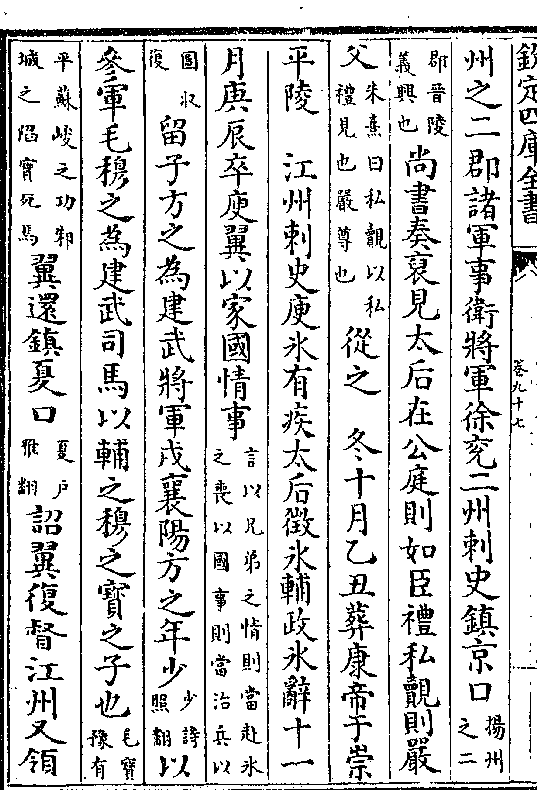 欽定四庫全書
卷九十七
州之二郡諸軍事衛將軍徐兖二州刺史鎮京口揚州之二
郡晉陵義興也尚書奏裒見太后在公庭則如臣禮私覿則嚴
父朱熹曰私覿以私禮見也嚴尊也從之 冬十月乙丑葬康帝于崇
平陵 江州刺史庾氷有疾太后徵氷輔政氷辭十一
月庚辰卒庾翼以家國情事言以兄弟之情則當赴氷之喪以國事則當治兵以
圖収復留子方之為建武將軍戍襄陽方之年少少詩照翻以
參軍毛穆之為建武司馬以輔之穆之寶之子也毛寶豫有
平蘇峻之功邾城之陷寶死焉翼還鎮夏口夏戶雅翻詔翼復督江州又領